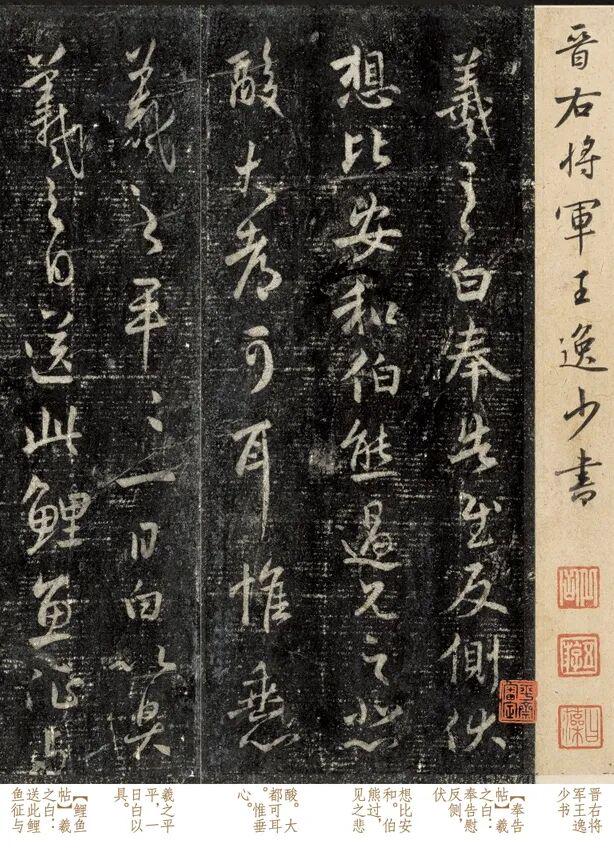 晉右将軍王逸少書
羲之白奉告慰反側伏
想比安和伯熊過見之悲
酸大都可耳惟垂心
羲之平〻一日白以具
羲之白送此鯉魚征與
晋右将
军王逸
少书
【奉告
帖】羲
之白：
奉告慰
反侧，
伏
想比安
和。伯
熊过，
见之悲
酸。大
都可耳
。惟垂
心。
羲之平
平，一
日白以
具。
【鲤鱼
帖】羲
之白：
送此鲤
鱼征与